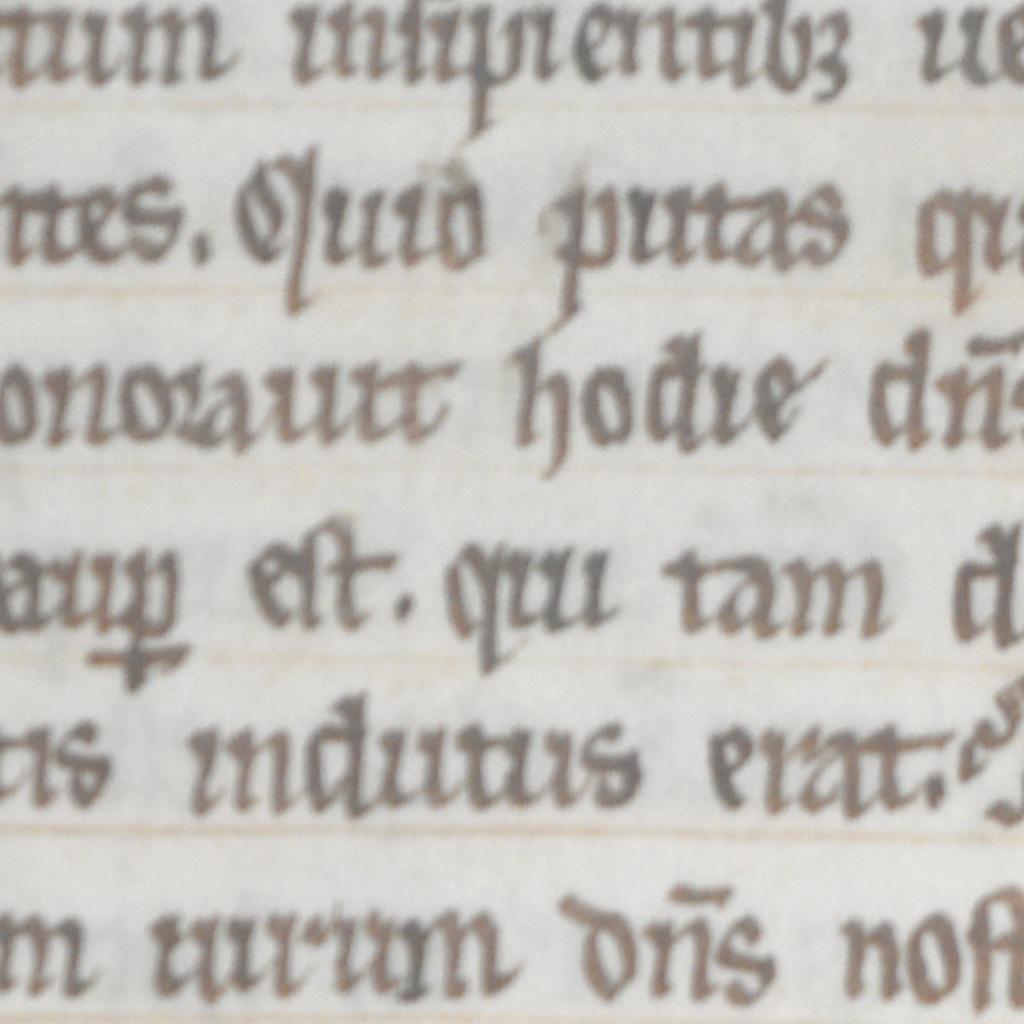 tum insipientibꝫ ue
ntes. Quid putas qu
onorauit hodie dn̄s
auꝑ est. qui tam d
tis indutus erat.
m uirum dn̄s nost